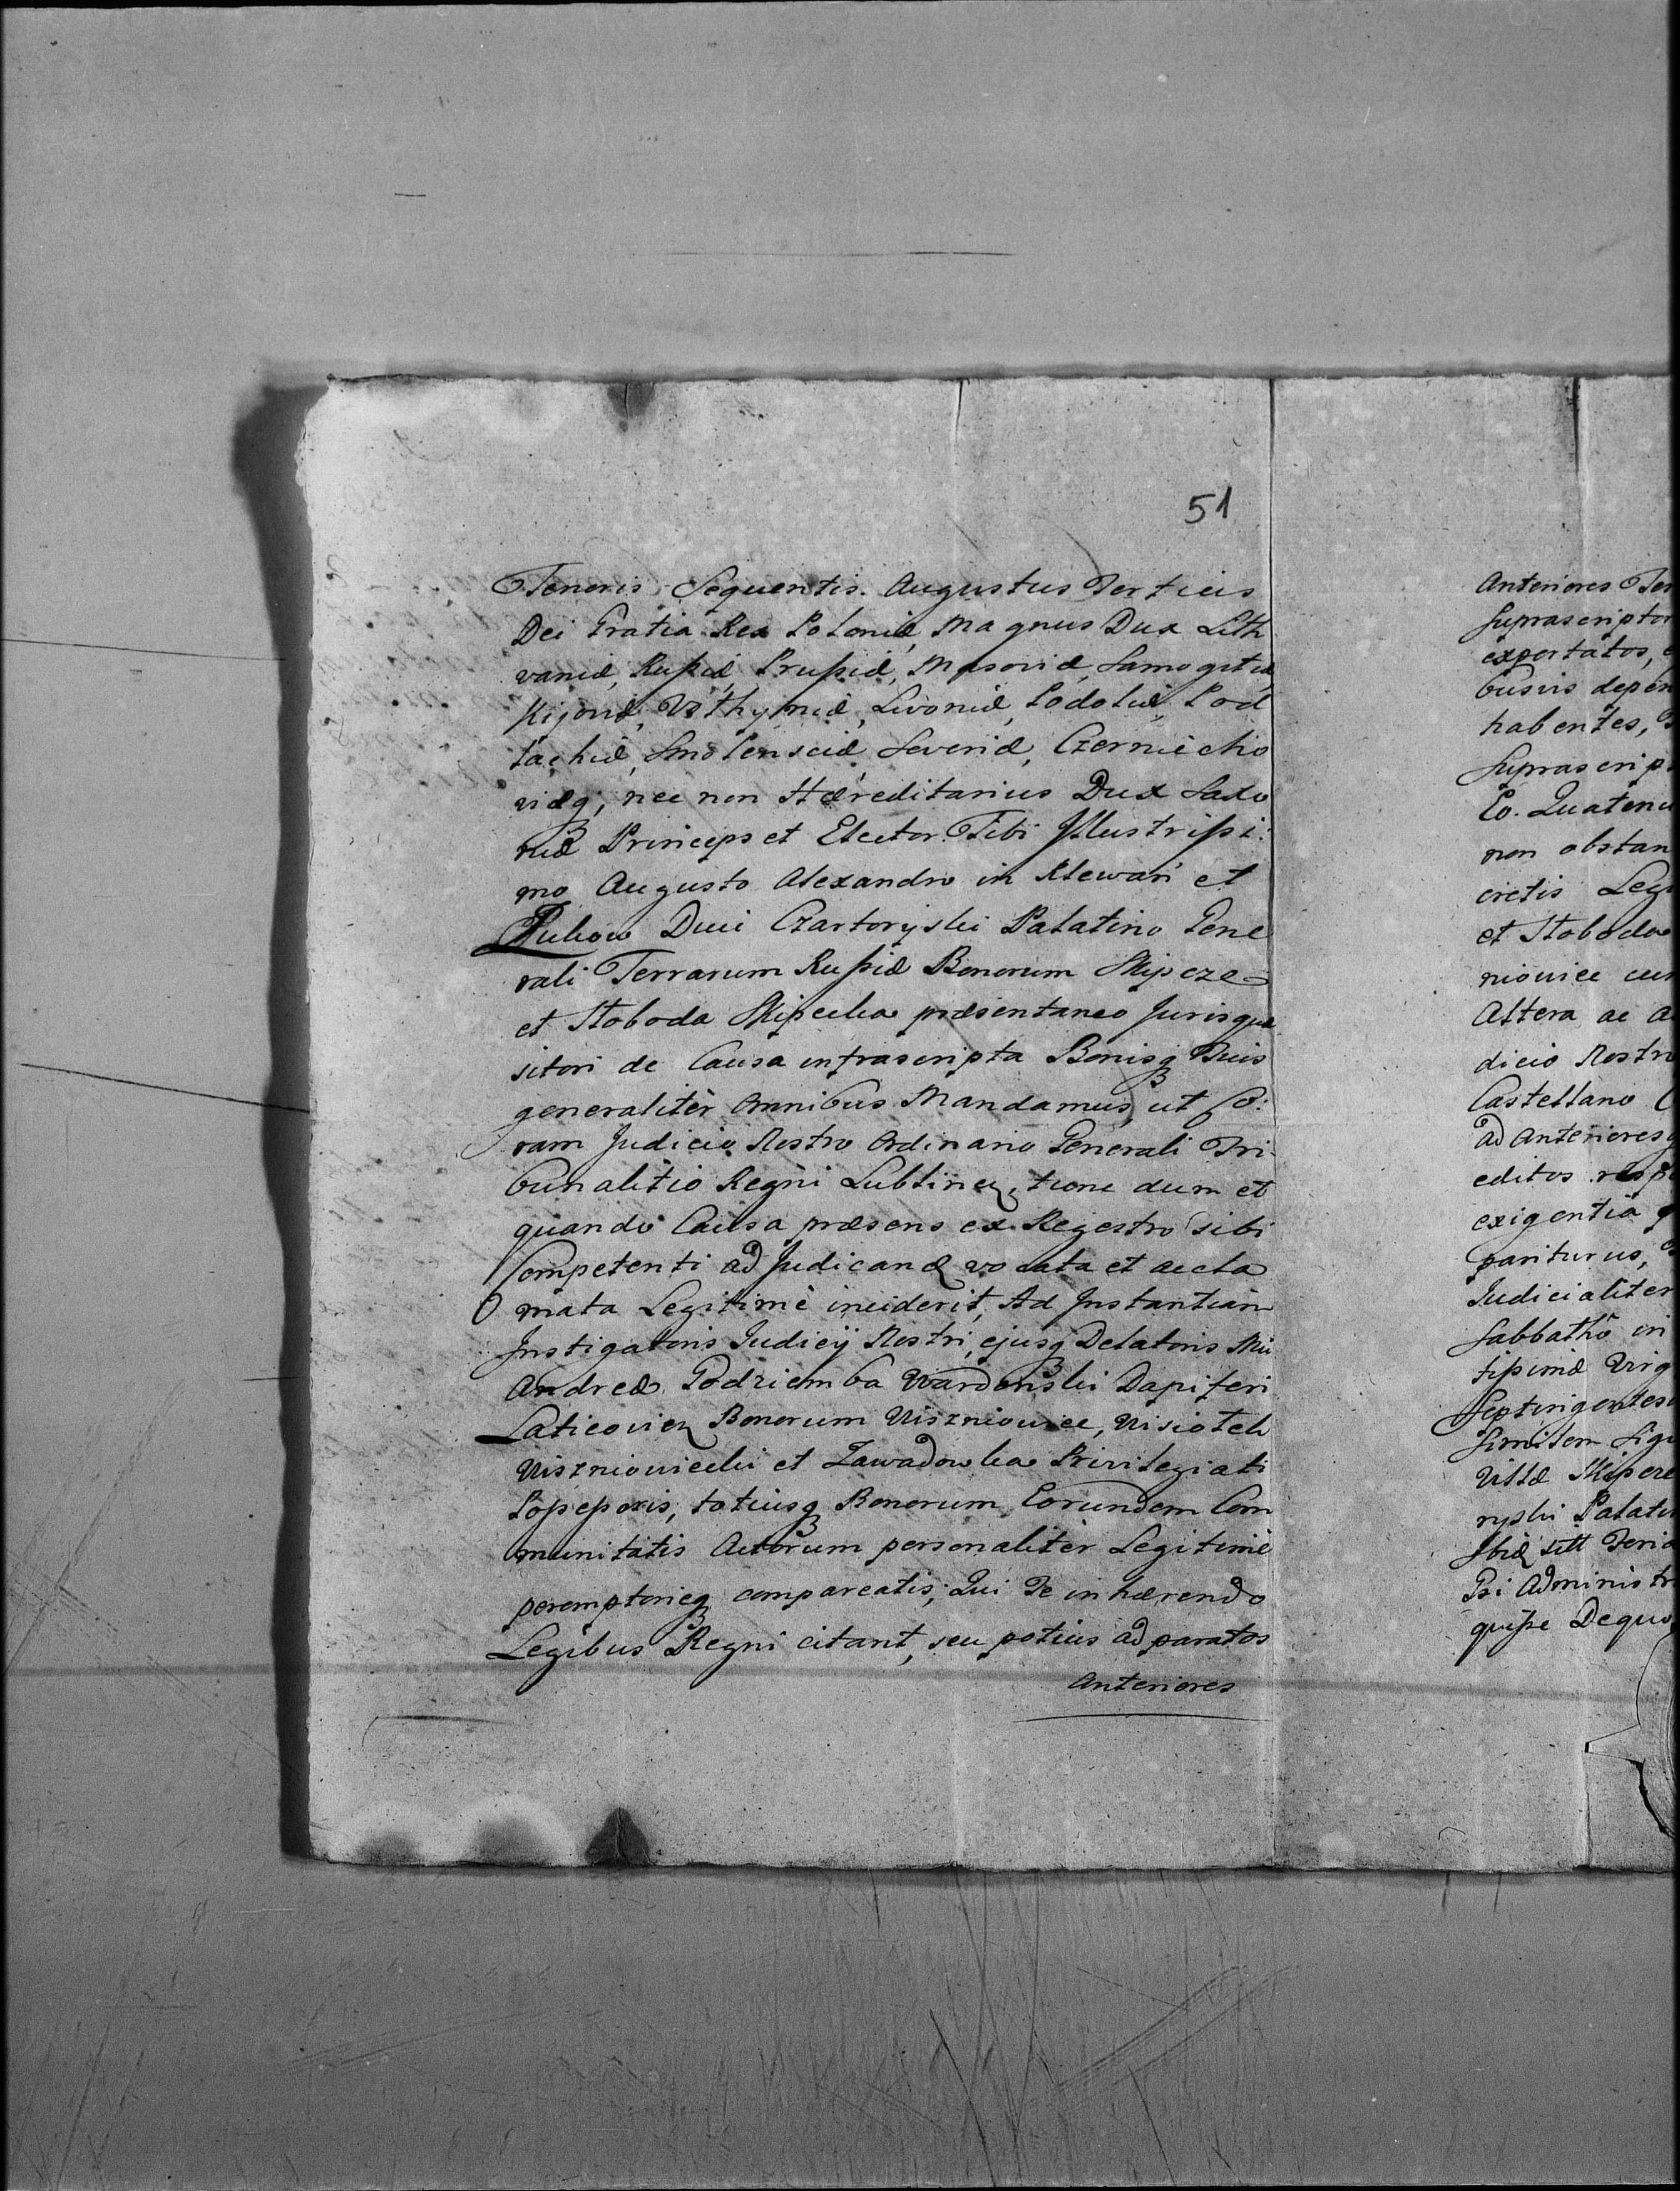 51
Tenoris Sequentis. Augustus Tertius
Dei Gratia Rex Poloniæ, Magnus Dux Lith
vaniæ, Rußiæ, Prußiæ, Masoviæ, Samogitiæ
Kijoviæ, Volhyniæ, Livoniæ, Podoliæ, Pod
lachiæ, Smolensciæ Severiæ, Czerniecho
viæq;, nec non Hæreditarius Dux Saxo
niæ Princeps et Elector. Tibi Illustrißi:
mo Augusto Alexandro in Klewań et
Żukow Duci Czartoryski Palatino Gene
rali Terrarum Rußiæ Bonorum Skipcze
et Słoboda Skipecka præsentaneo Jurisquæ
sitori de Causa infrascripta Bonisq Tuis
generalitèr omnibus Mandamus, ut Co:
ram Judicio Nostro Ordinario Generali Tri-
bunalitio Regni Lublinen, tunc dum et
quando Causa præsens ex Regestro sibi
Competenti ad Judicand vocata et accla
mata Legitimè inciderit, Ad Instantiam
Instigatoris Judicÿ Nostri, ejusq Delatoris
Andreæ Podziemba Wardenski Dapiferi
Laticovien Bonorum Wiszniowiec,
Wiszniowiecki et Zawadowka Privilegiati
Poßeßoris, totiusq Bonorum Eorundem Com
munitatis Actorum personalitèr Legitimè
peremptorieq compareatis; Qui Te inhærendo
Legibus Regni citant, seu potius ad paratos
Anteriores
Anteriores
Suprascriptor
exportatos,
busvis depen
habentes,
Suprascrip
Eo. Quatenu
non obstan
cretis Leg
et Słoboda
niowiec cum
Altera ac
dicio Nostro
Castellano
ad Anteriores
editos resp
exigentia
pariturus,
Judicialiter
Sabbathô in
tißimæ Virg
Septingentes
Similem Sig
Villæ Skipcze
ryski Palati
Ibid
Psi Administr
quiße Dequo